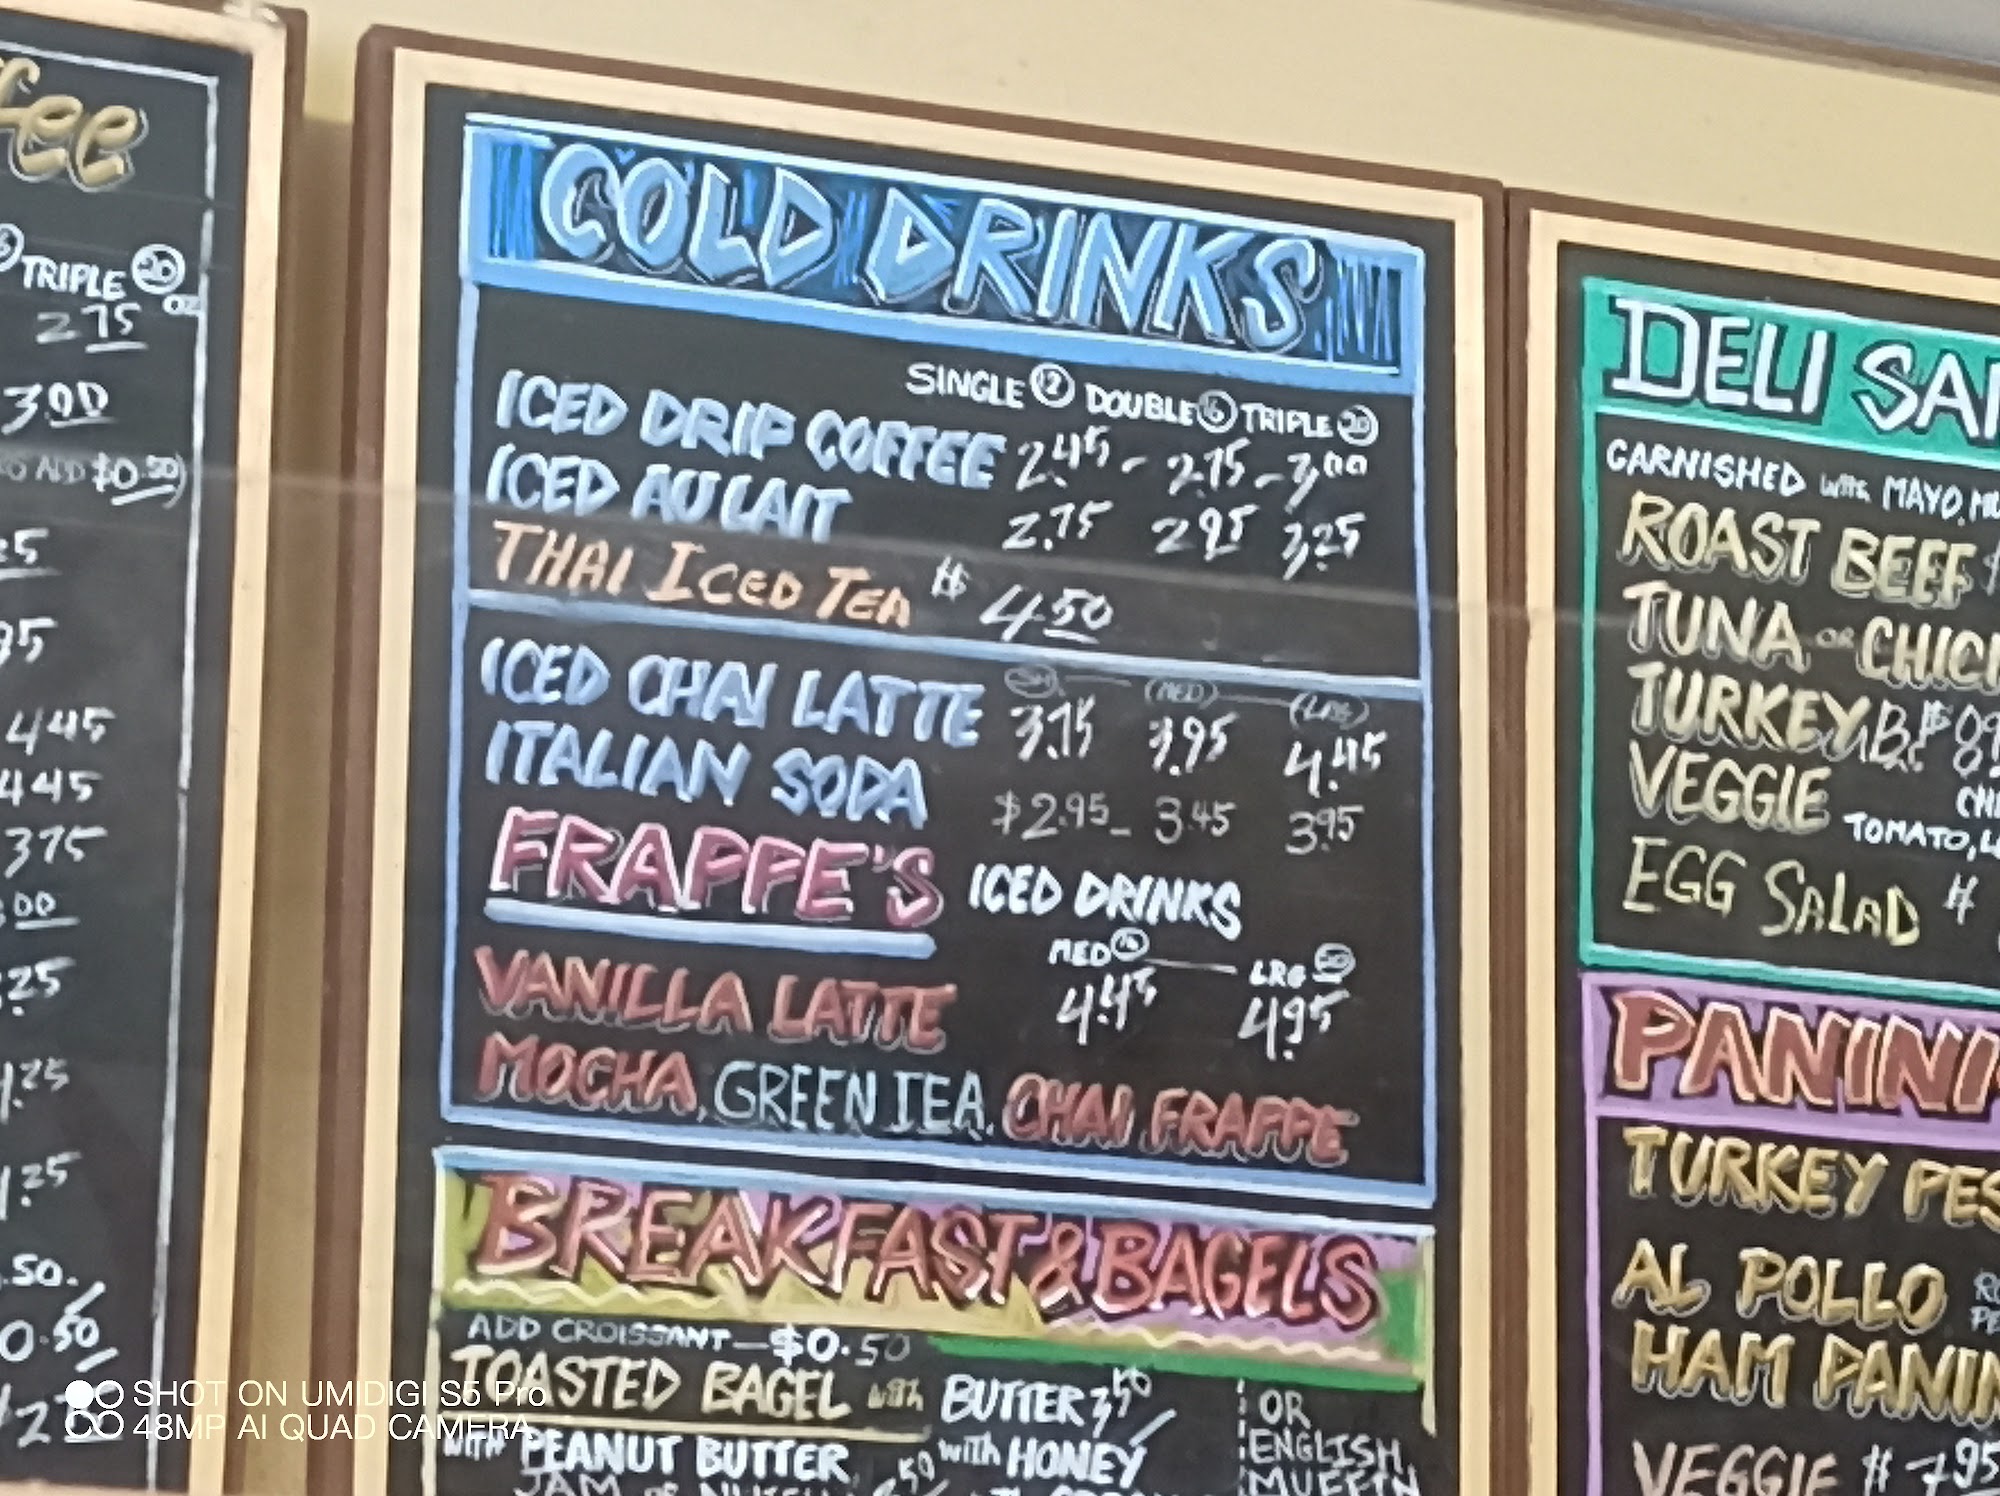 TRIPLE 20 OZ
2.75
3.00
ADD $0.50)
4.45
4.45
3.75
.25
.25
.25
.50
0.50
COLD DRINKS
SINGLE 12 DOUBLE 16 TRIPLE 20
ICED DRIP COFFEE 2.45 - 2.75 - 3.00
ICED AU LAIT 2.75 2.95 3.25
THAI ICED TEA $4.50
(SM) (MED) (LRG)
ICED CHAI LATTE 3.75 3.95 4.45
ITALIAN SODA $2.95 - 3.45 3.95
FRAPPE'S ICED DRINKS
MED 16 LRG 20
VANILLA LATTE 4.45 4.95
MOCHA, GREEN TEA, CHAI FRAPPE
BREAKFAST & BAGELS
ADD CROISSANT — $0.50
TOASTED BAGEL with BUTTER 3.50 OR
with PEANUT BUTTER with HONEY ENGLISH
JAM MUFFIN
DELI
GARNISHED with MAYO,
ROAST BEEF
TUNA OR
TURKEY
VEGGIE
TOMATO,
EGG SALAD $
PANINI
TURKEY
AL POLLO
HAM
VEGGIE $7.95
SHOT ON UMIDIGI S5 Pro
48MP AI QUAD CAMERA